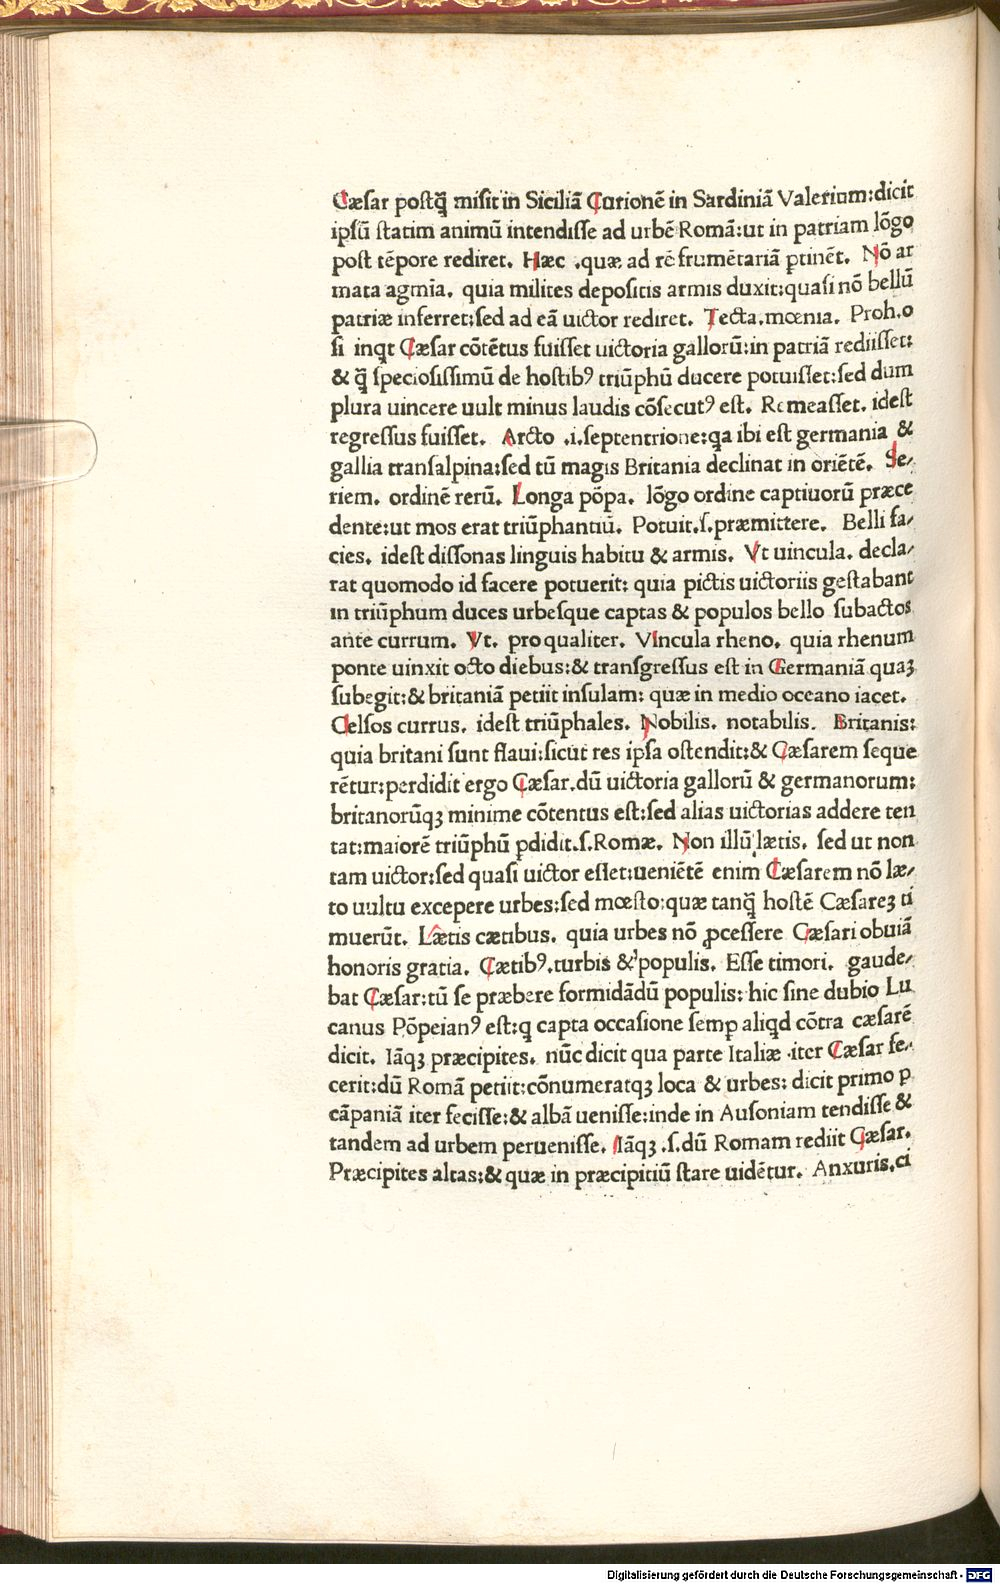 Cæsar postq̃ misit in Siciliã Curionẽ in Sardiniã Valerium:dicit
ipsũ statim animũ intendisse ad urbẽ Romã:ut in patriam lõgo
post tẽpore rediret. Hæc .quæ ad rẽ frumẽtariã ꝑtinẽt. Nõ ar
mata agmĩa. quia milites depositis armis duxit:quasi nõ bellũ
patriæ inferret:sed ad eã uictor rediret. Tecta.mœnia. Proh.o
si inqt Cæsar cõtẽtus fuisset uictoria gallorũ:in patriã rediisset:
& q̃ speciosissimũ de hostibꝰ triũphũ ducere potuisset:sed dum
plura uincere uult minus laudis cõsecutꝰ est. Remeasset. idest
regressus fuisset. Arcto .i.septentrione:qa ibi est germania &
gallia transalpina:sed tũ magis Britania declinat in oriẽtẽ. Se⸗
riem. ordinẽ rerũ. Longa põpa. lõgo ordine captiuorũ præce
dente:ut mos erat triũphantiũ. Potuit.s.præmittere. Belli fa⸗
cies. idest dissonas linguis habitu & armis. Vt uincula. decla⸗
rat quomodo id facere potuerit: quia pictis uictoriis gestabant
in triũphum duces urbesque captas & populos bello subactos
ante currum. Vt. pro qualiter. Vincula rheno. quia rhenum
ponte uinxit octo diebus:& transgressus est in Germaniã quaꝫ
subegit:& britaniã petiit insulam: quæ in medio oceano iacet.
Celsos currus. idest triũphales. Nobilis. notabilis. Britanis:
quia britani sunt flaui:sicut res ipsa ostendit:& Cæsarem seque
rẽtur:perdidit ergo Cæsar.dũ uictoria gallorũ & germanorum:
britanorũqꝫ minime cõtentus est:sed alias uictorias addere ten
tat:maiorẽ triũphũ ꝑdidit.s.Romæ. Non illũ lætis. sed ut non
tam uictor:sed quasi uictor esset:ueniẽtẽ enim Cæsarem nõ læ⸗
to uultu excepere urbes:sed mœsto:quæ tanq̃ hostẽ Cæsareꝫ ti
muerũt. Lætis cætibus. quia urbes nõ ꝓcessere Cæsari obuiã
honoris gratia. Cætibꝰ.turbis & populis. Esse timori. gaude⸗
bat Cæsar:tũ se præbere formidãdũ populis: hic sine dubio Lu
canus Põpeianꝰ est:q capta occasione semꝑ aliqd cõtra cæsarẽ
dicit. Iãqꝫ præcipites. nũc dicit qua parte Italiæ .iter Cæsar fe⸗
cerit:dũ Romã petiit:cõnumeratqꝫ loca & urbes: dicit primo ꝑ
cãpaniã iter fecisse:& albã uenisse:inde in Ausoniam tendisse &
tandem ad urbem peruenisse. Iãqꝫ .s.dũ Romam rediit Cæsar.
Præcipites altas:& quæ in præcipitiũ stare uidẽtur. Anxuris.ci
Digitalisierung gefördert durch die Deutsche Forschungsgemeinschaft - DFG